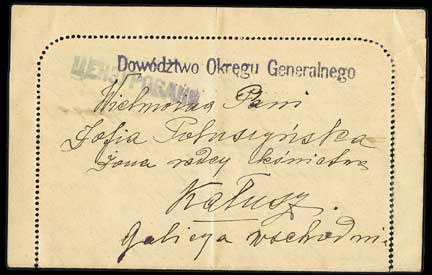 Dowództwo Okręgu Generalnego
Wielmożna Pani
Zofia
Żona radcy leśnictwa
Kałusz.
Galicya wschodnia